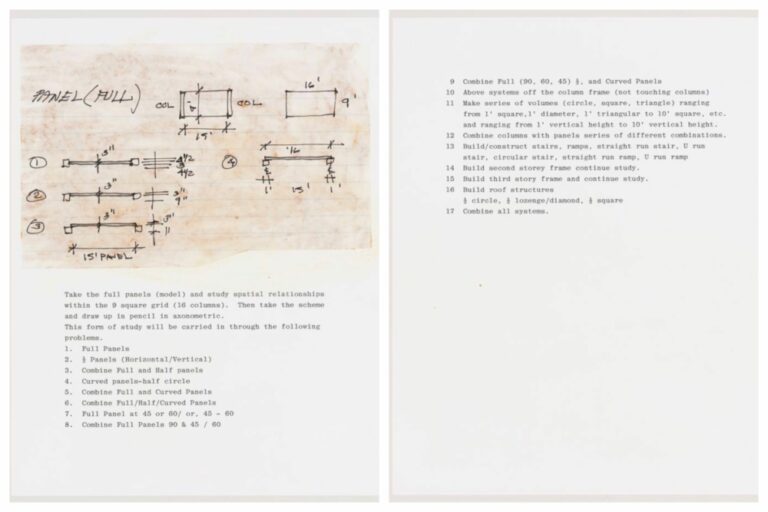 PANEL (FULL)
COL
COL.
15'
16'
9'
1
3"
4 1/2
3
4 1/2
2
3"
3"
9"
3
3"
3"
11
15' PANEL
4
'16
1'
15'
1'
Take the full panels (model) and study spatial relationships
within the 9 square grid (16 columns). Then take the scheme
and draw up in pencil in axonometric.
This form of study will be carried in through the following
problems.
1. Full Panels
2. ½ Panels (Horizontal/Vertical)
3. Combine Full and Half panels
4. Curved panels-half circle
5. Combine Full and Curved Panels
6. Combine Full/Half/Curved Panels
7. Full Panel at 45 or 60/ or, 45 - 60
8. Combine Full Panels 90 & 45 / 60
9 Combine Full (90, 60, 45) ½, and Curved Panels
10 Above systems off the column frame (not touching columns)
11 Make series of volumes (circle, square, triangle) ranging
from 1' square,1' diameter, 1' triangular to 10' square, etc.
and ranging from 1' vertical height to 10' vertical height.
12 Combine columns with panels series of different combinations.
13 Build/construct stairs, ramps, straight run stair, U run
stair, circular stair, straight run ramp, U run ramp
14 Build second storey frame continue study.
15 Build third story frame and continue study.
16 Build roof structures
½ circle, ½ lozenge/diamond, ½ square
17 Combine all systems.